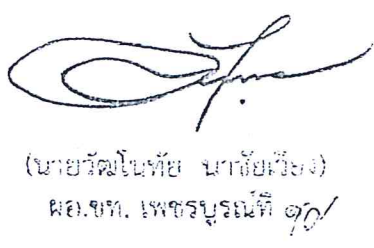 (นายวัฒโนทัย นาชัยเวียง)
ผอ.ขท. เพชรบูรณ์ที่